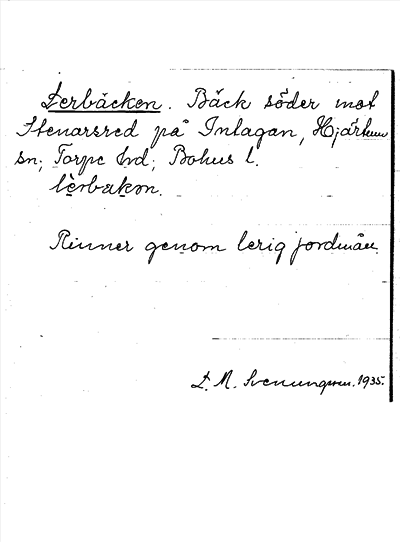 Lerbäcken. Bäck söder mot
Stenarsred på Inlagan, Hjärtum
sn; Torpe hrd; Bohus l.
lèrbækən.
Rinner genom lerig jordmån.
L. M. Svenungsson. 1935.